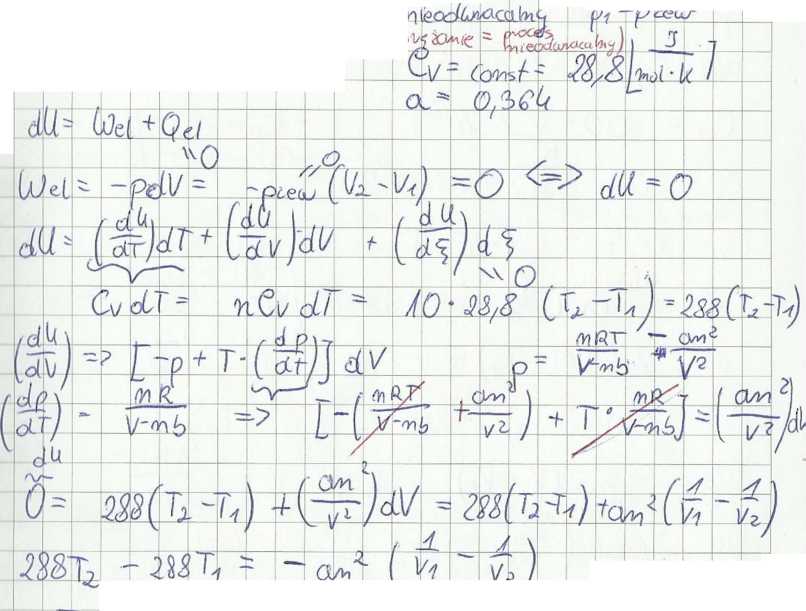 nieodwracalny p₁ - pzew
= proces nieodwracalny)
Cv = const = 28,8 [J/mol·K]
a = 0,364
dU = Wel + Qel
"0
Wel = -pdV = -pzew (V₂ - V₁) = 0 <=> dU = 0
"0
dU = (dU/dT)dT + (dU/dV)dV + (dU/dξ)dξ
"0
Cv dT = nCv dT = 10 · 28,8 (T₂ - T₁) = 288(T₂ - T₁)
(dU/dV) => [-p + T·(dp/dt)] dV p = nRT/V-nb - an²/V²
(dp/dT) = nR/V-nb => [-(nRT/V-nb + an²/V²) + T· nR/V-nb] = (an²/V²)dV
dU
0 = 288(T₂ - T₁) + (an²/V²)dV = 288(T₂ - T₁) + an²(1/V₁ - 1/V₂)
288T₂ - 288T₁ = - an² (1/V₁ - 1/V₂)